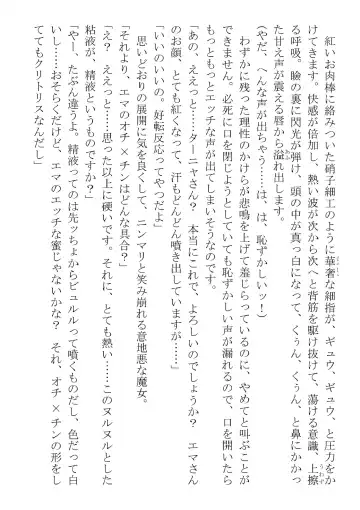 紅いお肉棒に絡みついた硝子細工のように華奢な細指が、ギュウ、ギュウ、と圧力をか
けてきます。快感が倍加し、熱い波が次から次へと背筋を駆け抜けて、蕩ける意識、上擦
る呼吸。瞼の裏に閃光が弾け、頭の中が真っ白になって、くぅん、くぅん、と鼻にかかっ
た甘え声が震える唇から溢れ出します。
（やだ、へんな声が出ちゃう……は、は、恥ずかしいッ！）
わずかに残った理性のかけらが悲鳴を上げて羞じらっていても、やめてと叫ぶことが
できません。必死に口を閉じようとしていても恥ずかしい声が漏れるので、口を開いたら
もっともっとエッチな声が出てしまいそうなのです。
「あの、ええっと……ターニャさん？　本当にこれで、よろしいのでしょうか？　エマさん
のお顔、とても紅くなって、汗もどんどん噴き出していますが……」
「いいのいいの。好転反応ってやつだよ」
思いどおりの展開に気を良くして、ニンマリと笑み崩れる意地悪な魔女。
「それより、エマのオチ×チンはどんな具合？」
「え？　ええっと……思った以上に硬いです。それに、とても熱い……このヌルヌルとした
粘液が、精液というものですか？」
「やー、たぶん違うよ。精液ってのは先ッちょからビュルルって噴くものだし、色だって白
いし……おそらくだけど、エマのエッチな蜜じゃないかな？　それ、オチ×チンの形をし
ててもクリトリスなんだし」